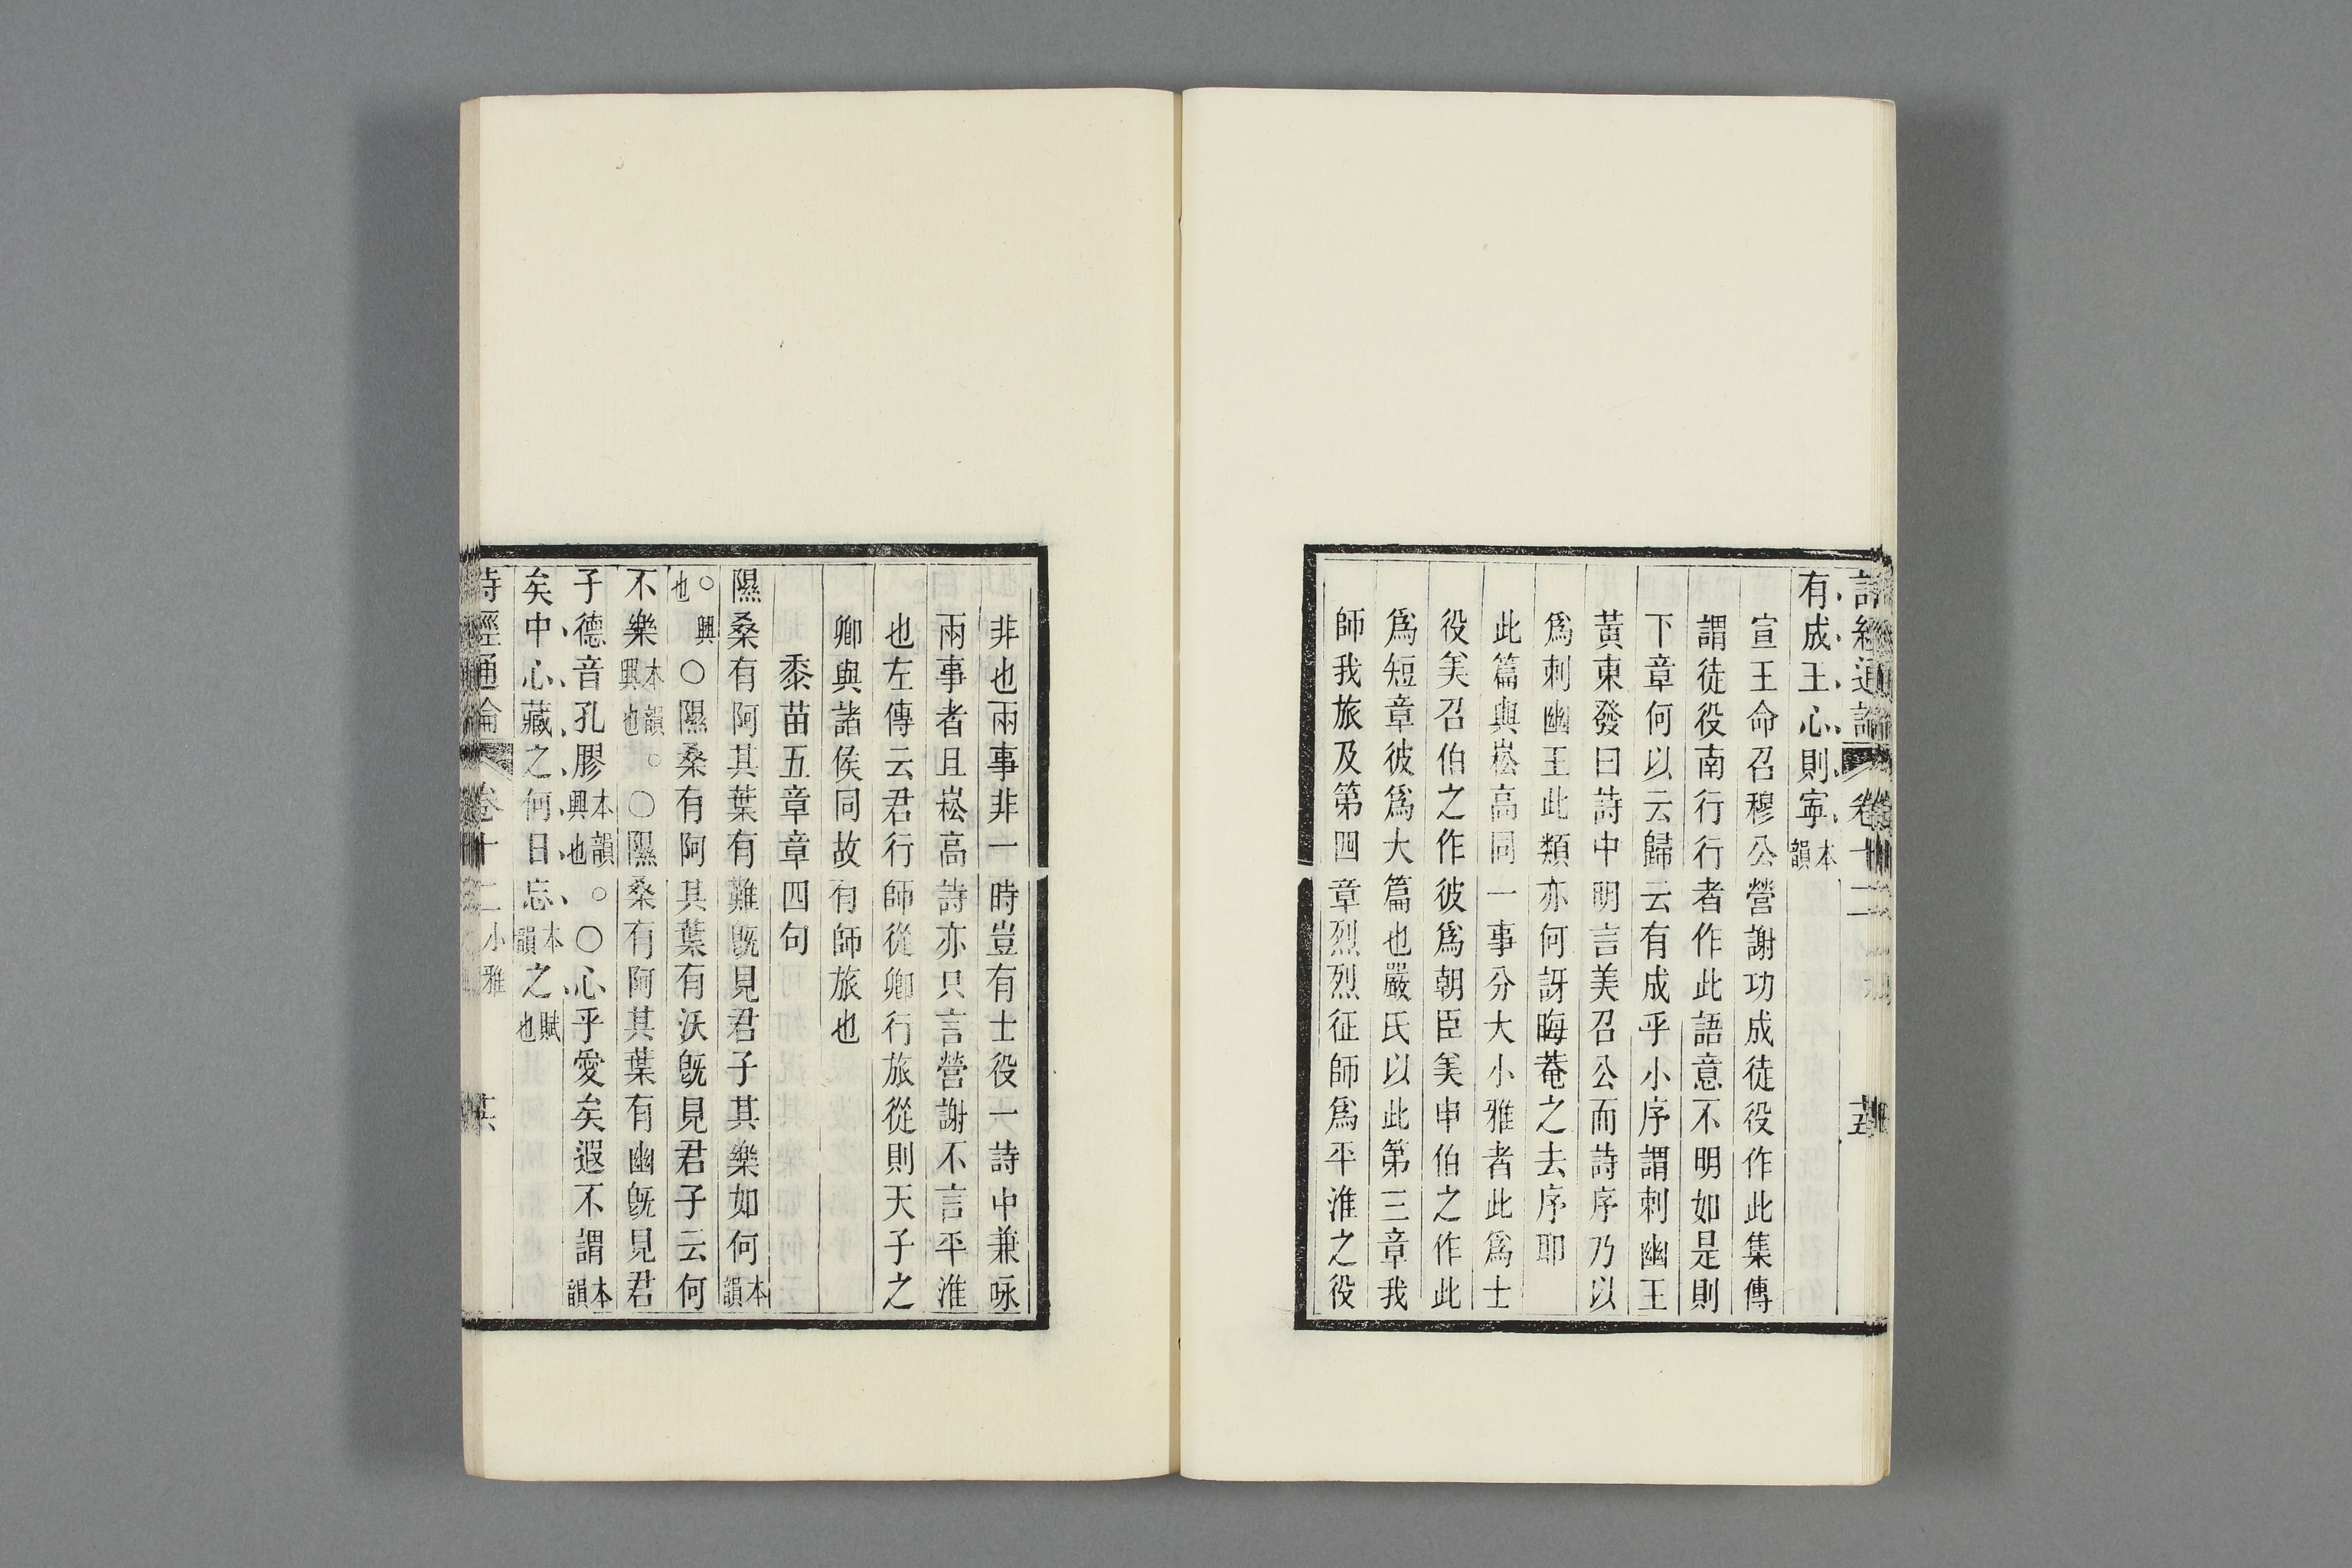 詩經通論 卷十二
有成王心則寧本韻
宣王命召穆公營謝功成徒役作此集傳
謂徒役南行行者作此語意不明如是則
下章何以云歸云有成乎小序謂刺幽王
黃東發曰詩中明言美召公而詩序乃以
爲刺幽王此類亦何訝晦菴之去序耶
此篇與崧高同一事分大小雅者此爲士
役美召伯之作彼爲朝臣美申伯之作此
爲短章彼爲大篇也嚴氏以此第三章我
師我旅及第四章烈烈征師爲平淮之役
非也兩事非一時豈有士役一詩中兼咏
兩事者且崧高詩亦只言營謝不言平淮
也左傳云君行師從卿行旅從則天子之
卿與諸侯同故有師旅也
黍苗五章章四句
隰桑有阿其葉有難既見君子其樂如何本韻
○興也○隰桑有阿其葉有沃既見君子云何
不樂本韻興也○○隰桑有阿其葉有幽既見君
子德音孔膠本韻興也○○心乎愛矣遐不謂本韻
矣中心藏之何日忘本韻之賦也
詩經通論 卷十二 小雅